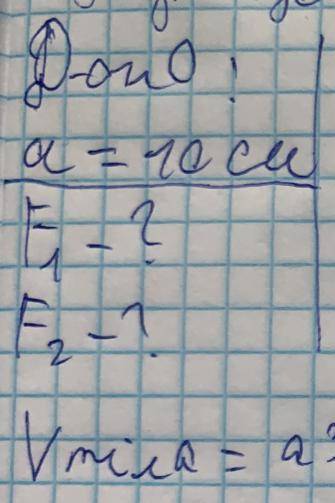 Дано:
a = 10 см
F₁ - ?
F₂ - ?
Vтіла = a³